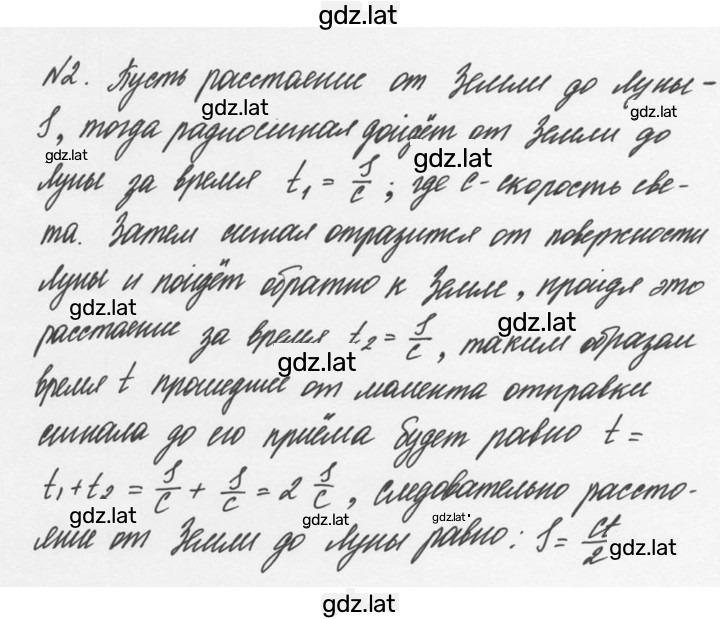 gdz.lat
N2. Пусть расстояние от Земли до Луны -
gdz.lat gdz.lat
S, тогда радиосигнал дойдёт от Земли до
gdz.lat gdz.lat
Луны за время t₁ = S/c ; где c - скорость све-
та. Затем сигнал отразится от поверхности
Луны и пойдёт обратно к Земле, пройдя это
gdz.lat gdz.lat
расстояние за время t₂ = S/c, таким образом
gdz.lat
время t прошедшее от момента отправки
сигнала до его приёма будет равно t =
t₁ + t₂ = S/c + S/c = 2 S/c, следовательно рассто-
gdz.lat gdz.lat gdz.lat
яние от Земли до Луны равно: S = ct/2
gdz.lat
gdz.lat